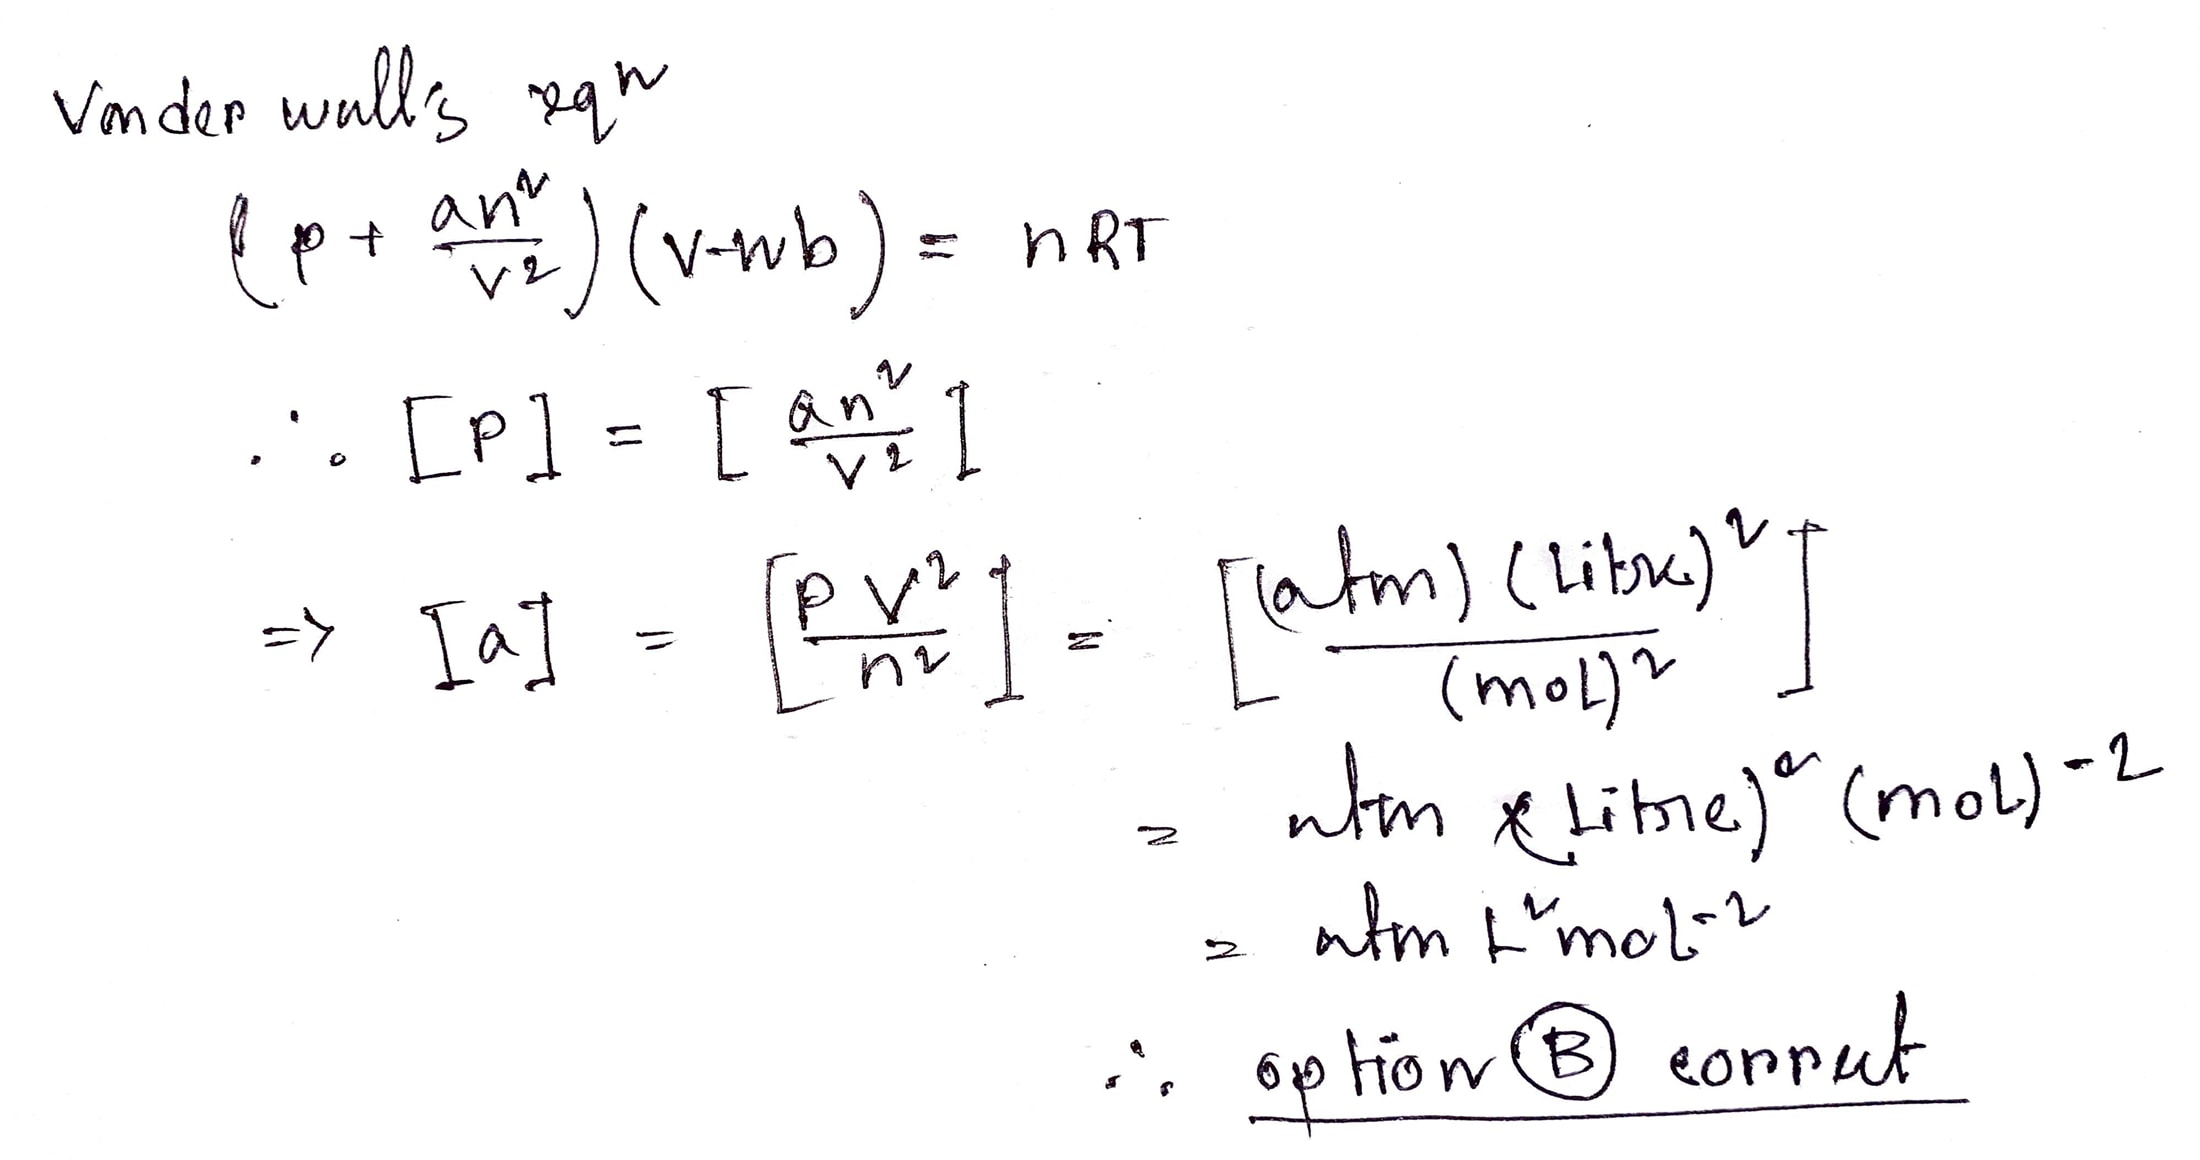 Vander wall's eqn
(P + an²/v²) (v-nb) = nRT
∴ [P] = [an²/v²]
=> [a] = [PV²/n²] = [(atm) (Litre)²/(mol)²]
= atm (Litre)² (mol)-2
= atm L² mol-2
∴ option B correct